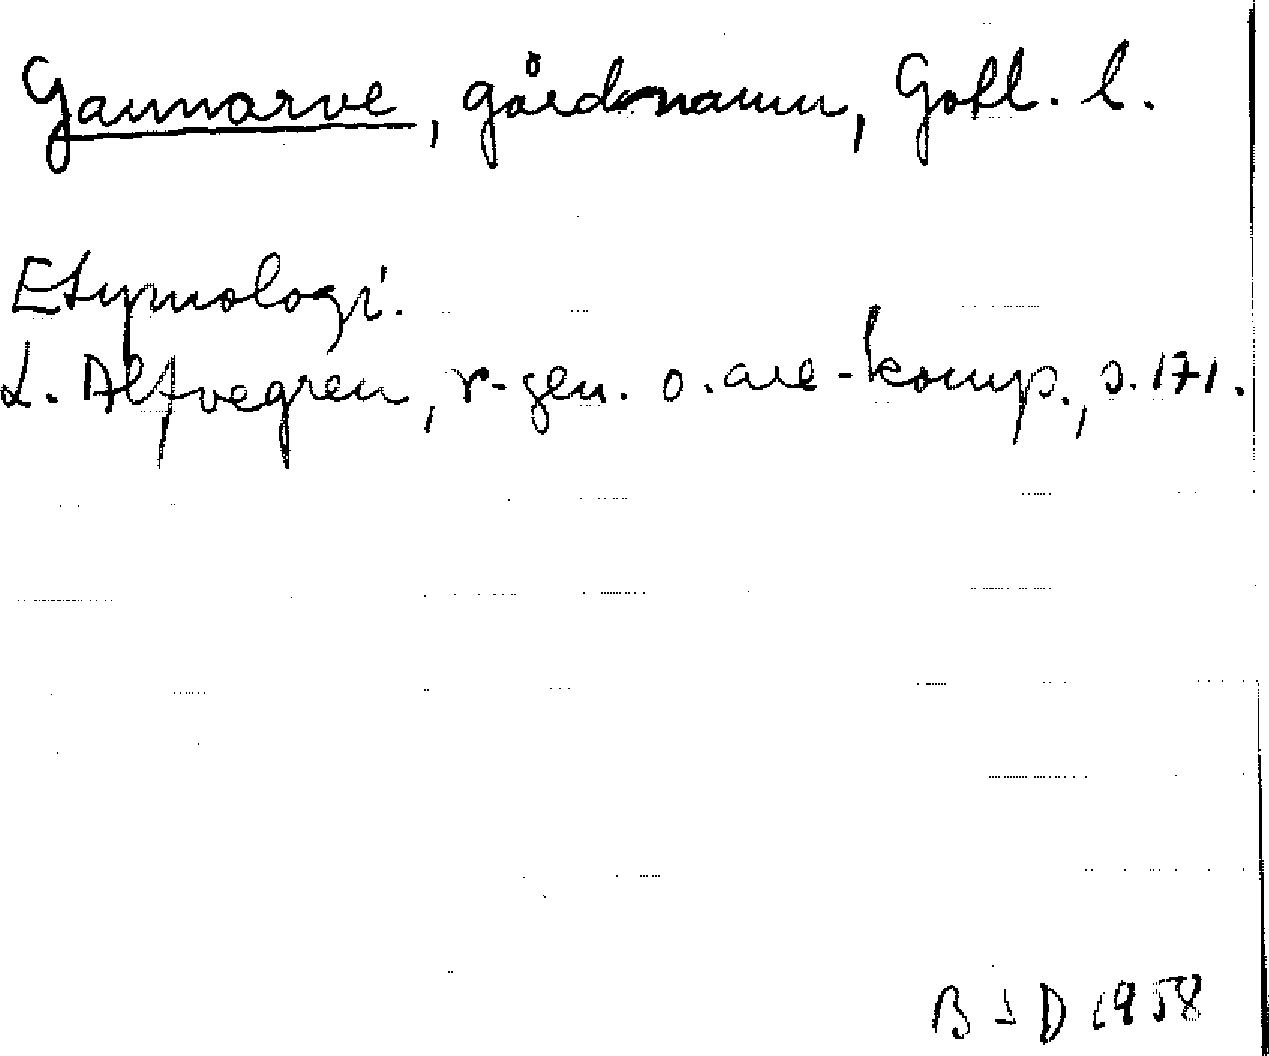 Gannarve, gårdnamn, Gotl. l.
Etymologi.
L. Alfvegren, r-gen. o. are-komp., s. 171.
B S D 1958